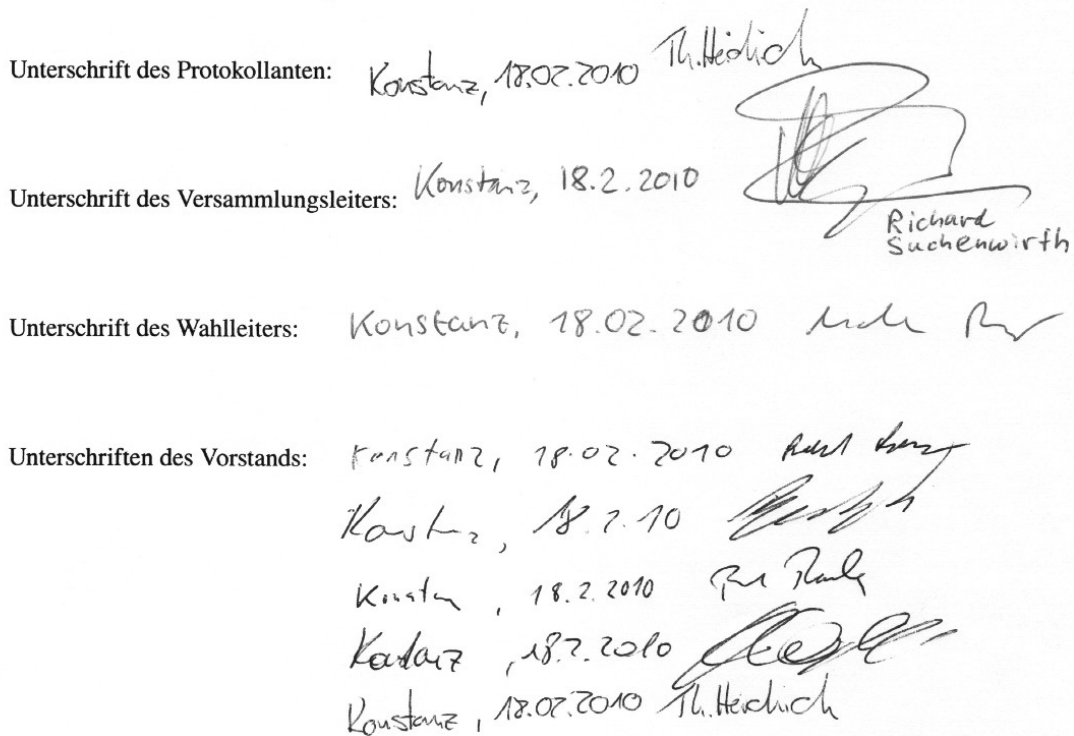 Unterschrift des Protokollanten: Konstanz, 18.02.2010 Th. Heidrich
Unterschrift des Versammlungsleiters: Konstanz, 18.2.2010
Richard
Suchenwirth
Unterschrift des Wahlleiters: Konstanz, 18.02.2010
Unterschriften des Vorstands: Konstanz, 18.02.2010
Konstanz, 18.2.10
Konstanz, 18.2.2010
Konstanz, 18.2.2010
Konstanz, 18.02.2010 Th. Heidrich